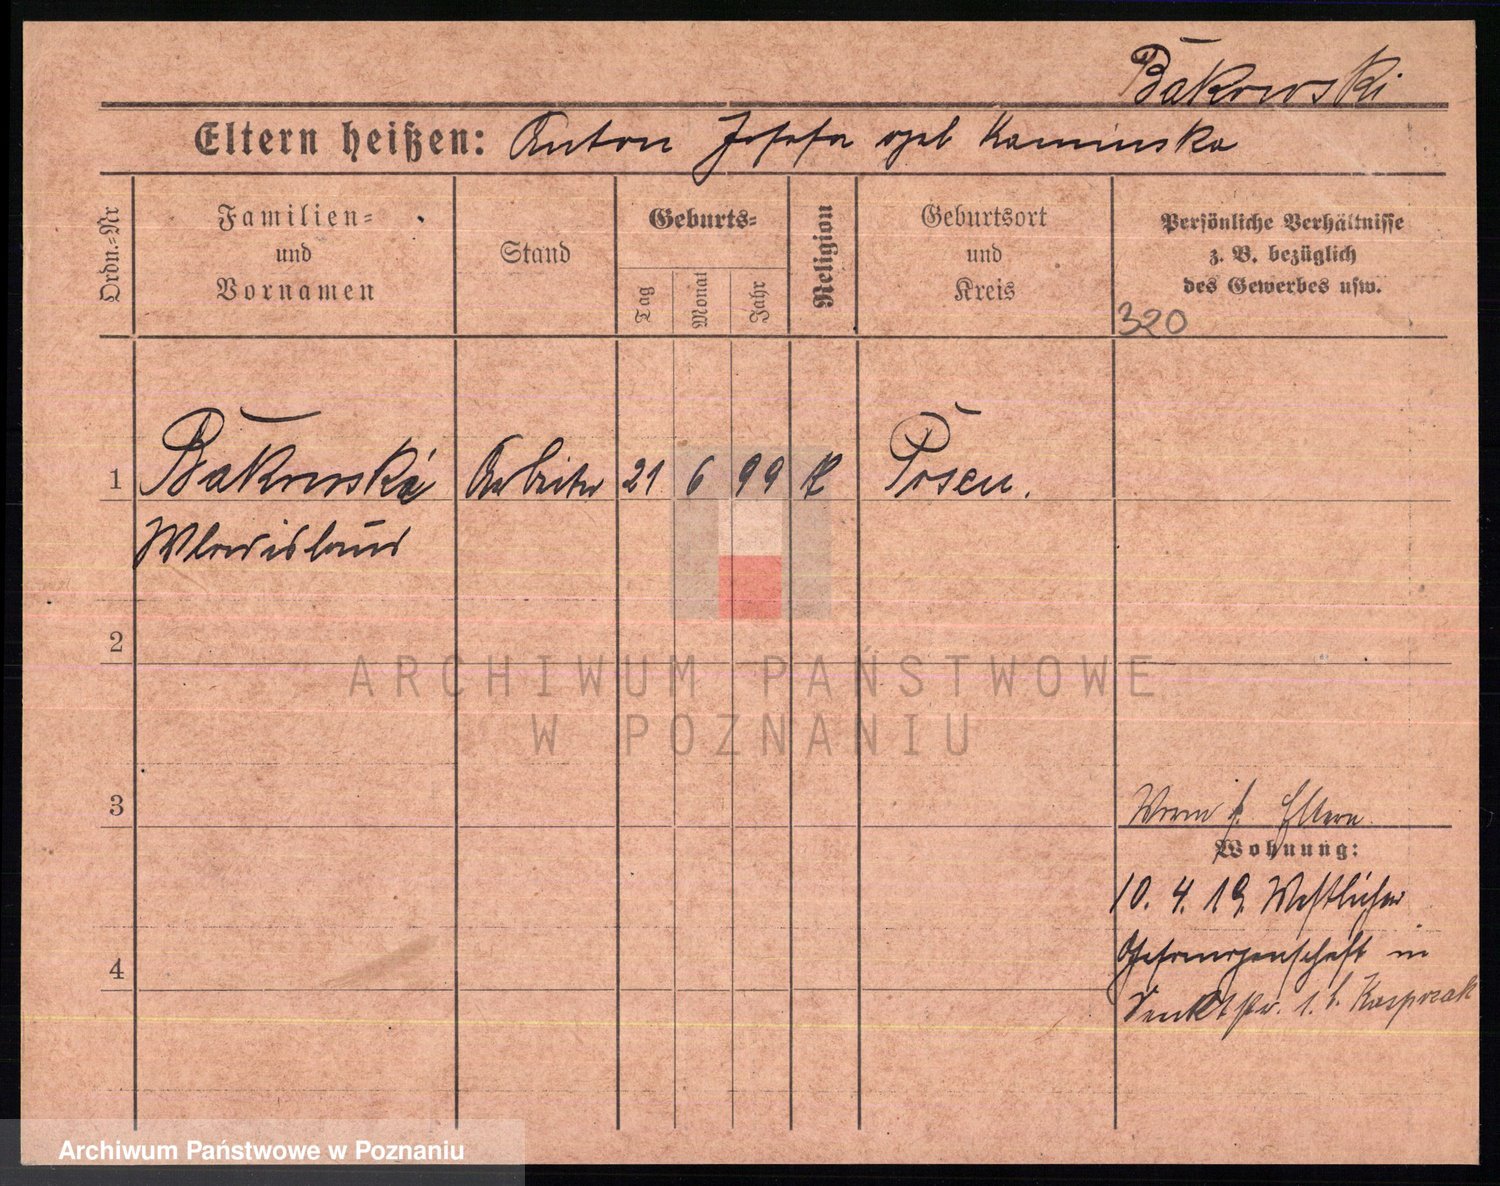 Bąkowski
Eltern heißen: Anton Josefa geb Kaminska
Ordn.=Nr
Familien=
und
Vornamen
Stand
Geburts=
Tag
Monat
Jahr
Religion
Geburtsort
und
Kreis
Persönliche Verhältnisse
z. B. bezüglich
des Gewerbes usw.
320
1 Bąkowski Arbeiter 21 6 99 K Posen.
Wladislaus
2
ARCHIWUM PAŃSTWOWE
W POZNANIU
3
Eltern
Wohnung:
10. 4. 19. Westlicher
Gefangenschaft in
4
Kasprzak
Archiwum Państwowe w Poznaniu